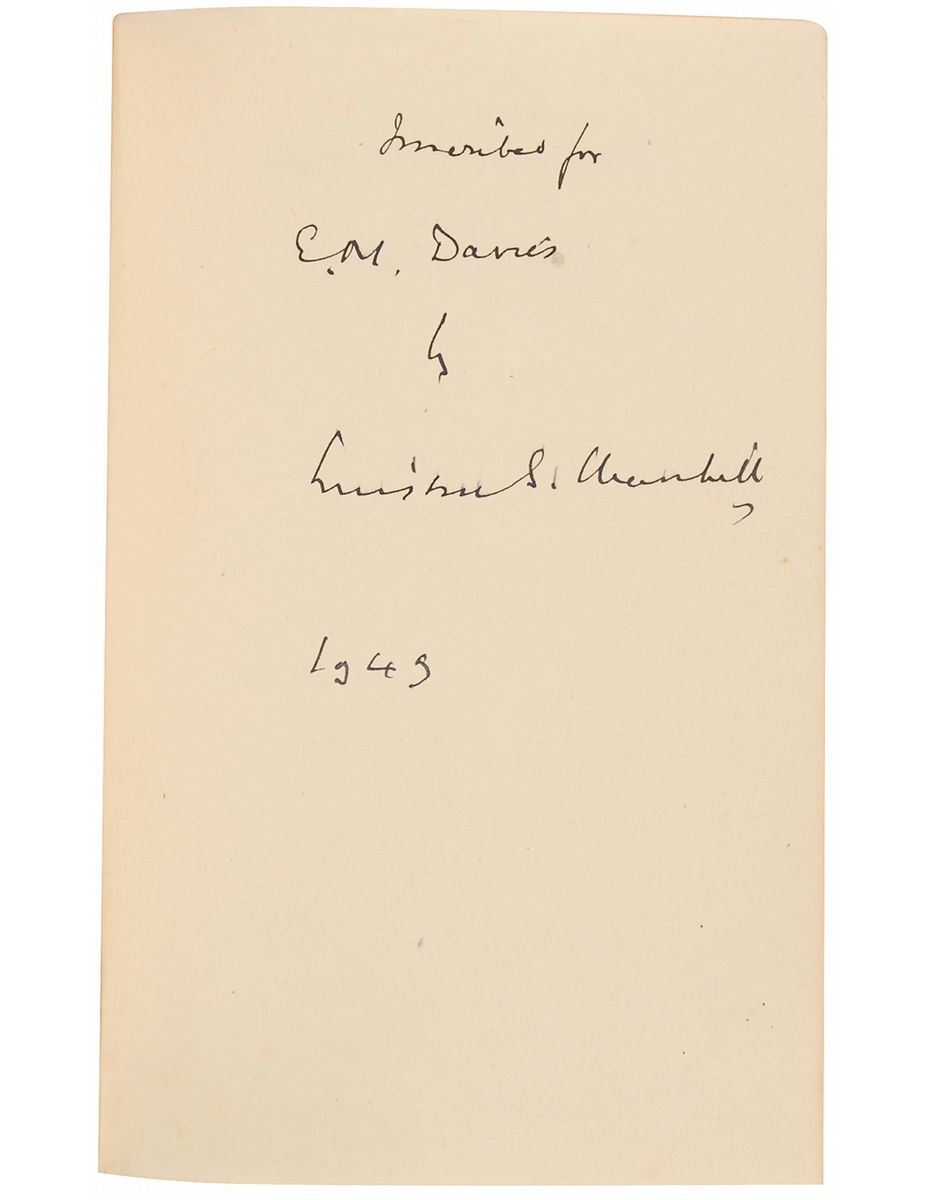 Inscribed for
E.M. Davies
by
Winston S. Churchill
1949